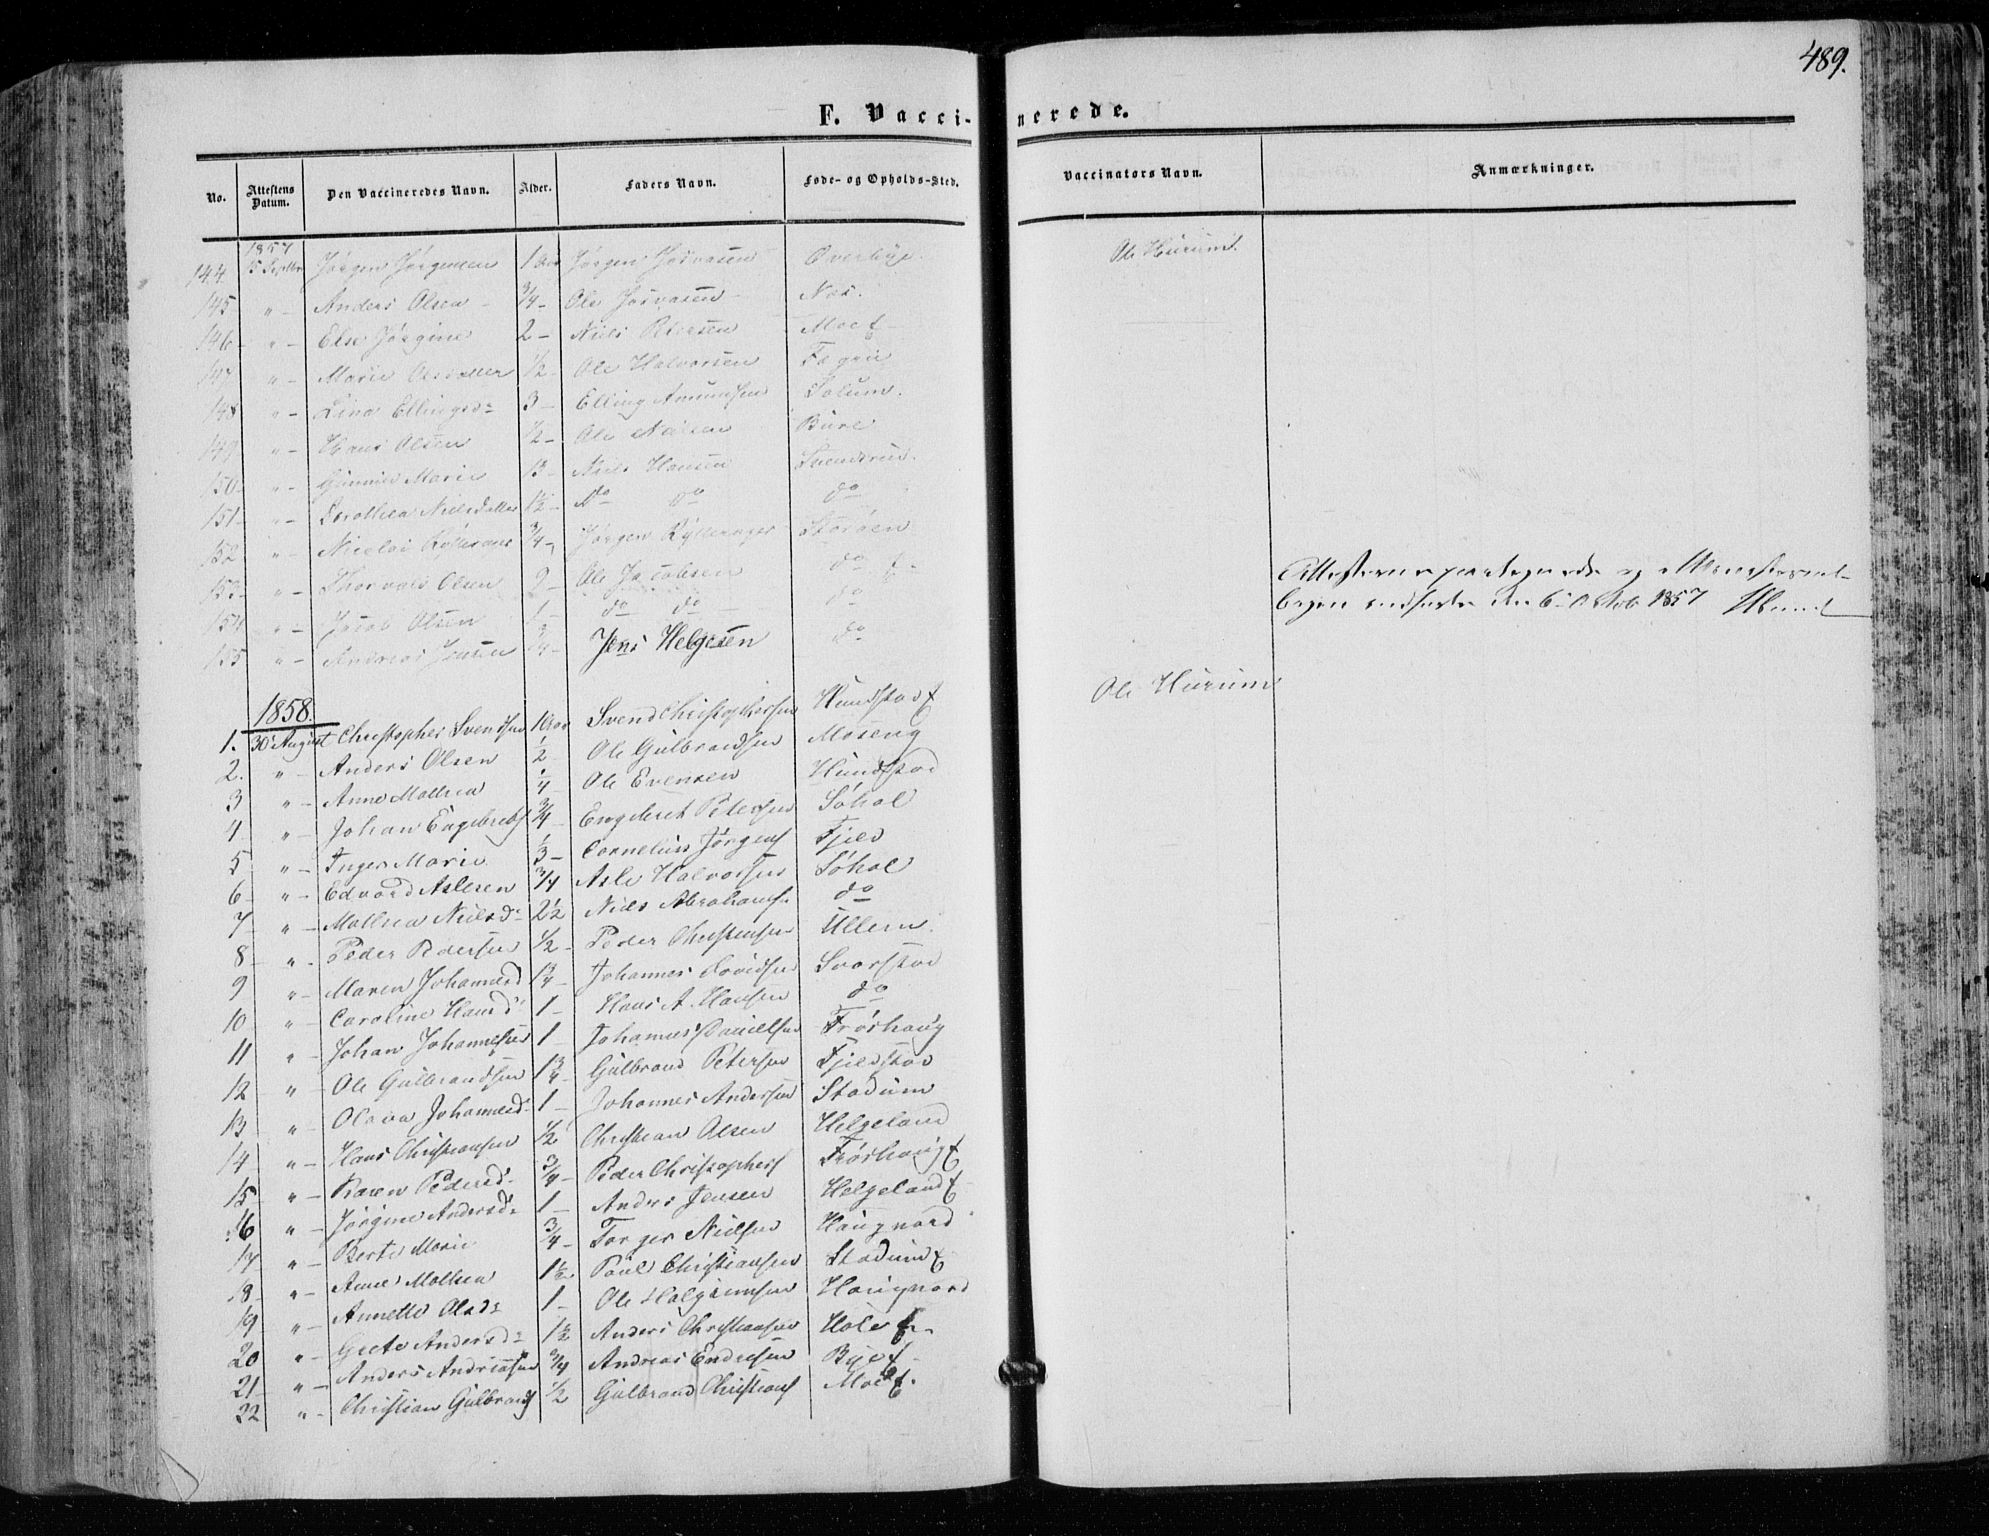 489.
F. Vaccinerede.
No. Attestens Datum. Den Vaccineredes Navn. Alder. Faders Navn. Føde- og Opholds-Sted. Vaccinators Navn. Anmærkninger.
1857
144 Jørgen Jørgensen 1 Aar Jørgen Overbye. Ole Hurum.
145 " - Anders Olsen - 3/4 - Ole Næs.
146 " - Else Jørgine 2 - Niels Petersen Moe
147 " - Marie 1/2 - Ole Halvorsen
148 " - Lina Ellingsd: 3 - Elling Amundsen Solum.
149 " - Hans Olsen 1/2 - Ole Nielsen Bure
150 " - Marie Niels Hansen Svendsrud.
151 " - Dorothea Nielsdatter 1 1/2 - do do do
152 " - Nicolai 3/4 - Jørgen Storøen
153 " - Thorvald Olsen 2 - Ole Jacobsen do
154 " - Jacob Olsen 1 - do do do
155 " - Andreas Jensen 3/4 - Jens Helgesen do
Attesterne og Ministerial-
bogen den 6 Octob 1857
1858.
Ole Hurum
1. 30 August Christopher Svendsen 1 Aar Svend Christophersen Hundstad
2. " - Anders Olsen 1/2 Ole Gulbrandsen Moseng
3 " - Anne Mathea 1/4 - Ole Evensen Hundstad
4 " - Johan Engebrets 3/4 - Engebret Petersen Søhol
5 " - Inger Marie 1/3 - Cornelius Jørgens Fjeld
6 - " - Edvard Aslesen 3/4 Asle Halvorsen Søhol
7 - " - Mathea Nielsd: 2 1/2 Niels Abrahams do
8 - " - Peder Pedersen 1/2 - Peder Christensen Ullern.
9 " - Maren Johannesd 1 3/4 - Johannes Davidsen Svarstad
10 " - Caroline Hansd: 1 - Hans A. Hansen do
11 " - Johan Johannessen 1 - Johannes Danielsen Frøshaug
12 " - Ole Gulbrandsen 1 3/4 - Gulbrand Petersen Fjeldstad
13 " - Olava Johannesd: 1 - Johannes Andersen Stadum
14 " - Hans Christiansen 1/2 Christian Olsen Helgeland
15 " - Karen Pedersd: 3/4 - Peder Christophers Frøshaug
16 " - Jørgine Andersd: 1 - Anders Jensen Helgeland
17 " - Berte Marie 3/4 - Torger Nielsen Haugnord
18 " - Anne Mathea 1 1/2 - Paul Christiansen Stadum
19 " - Annette Olsd: 1 - Ole Halgrimsen Haugnord
20 " - Grete Andersd: 1 1/2 Anders Christiansen Hole
21 - " - Anders Andreasen 3/4 Andreas Endresen Bye
22 " - Christian Gulbrands 1/2 Gulbrand Christians Moe